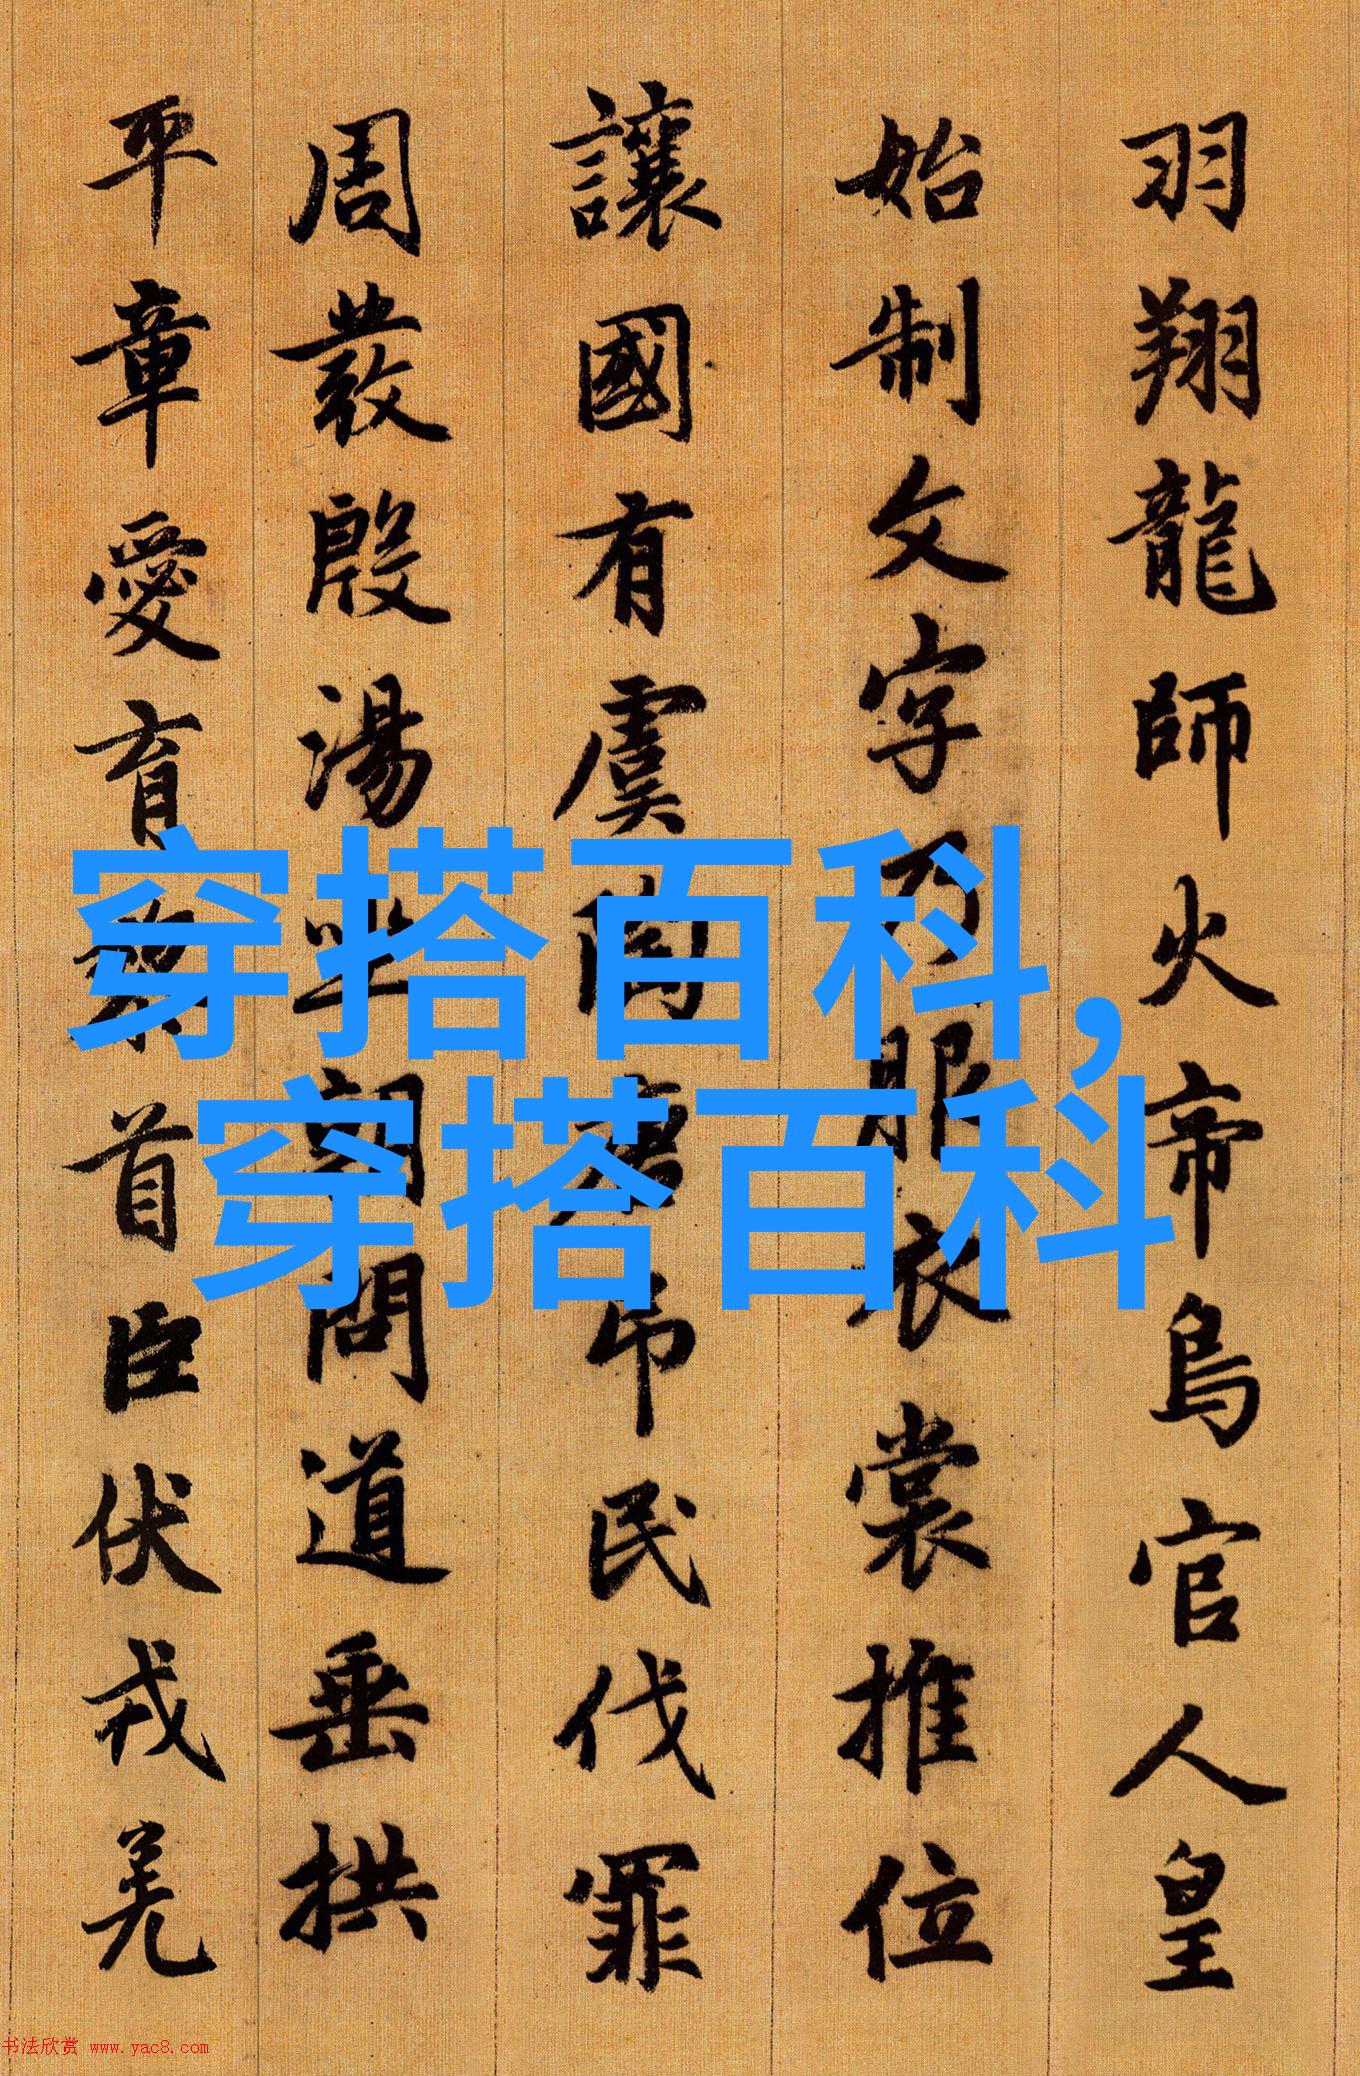 羽翔龍師火帝鳥官人皇
始制文字乃服衣裳推位
讓國有虞陶唐吊民伐罪
周發殷湯坐朝問道垂拱
平章愛育黎首臣伏戎羌
穿搭百科,
穿搭百科
书法欣赏 www.yac8.com